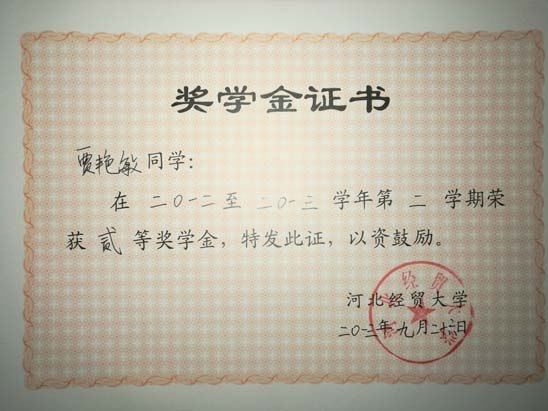 奖学金证书
贾艳敏同学：
在 二〇一二至 二〇一三 学年第 二 学期荣
获 贰 等奖学金，特发此证，以资鼓励。
河北经贸大学
二〇一三年九月二十日